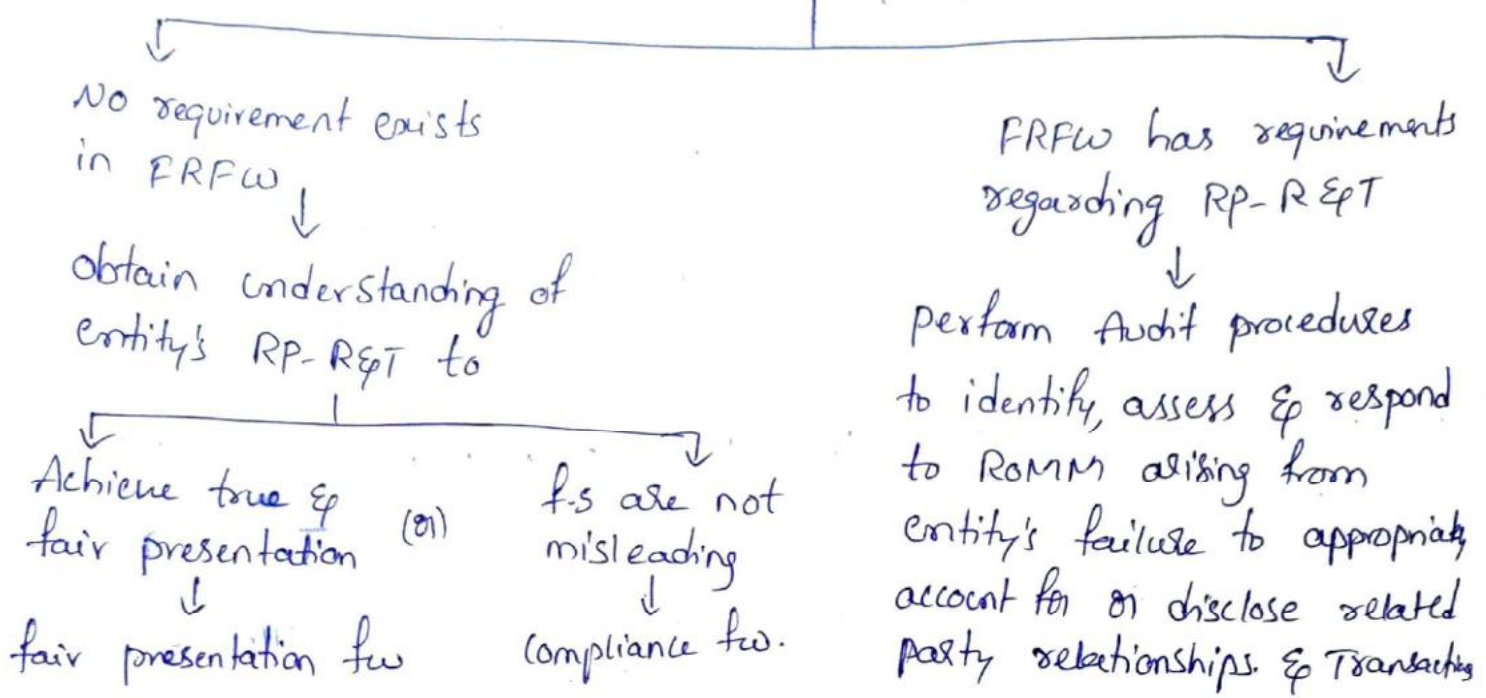 No requirement exists
in FRFW
obtain understanding of
entity's RP-R&T to
Achieve true &
fair presentation
fair presentation fw
(or)
f.s are not
misleading
compliance fw.
FRFW has requirements
regarding RP-R&T
perform Audit procedures
to identify, assess & respond
to ROMM arising from
entity's failure to appropriately
account for or disclose related
party relationships. & Transactions